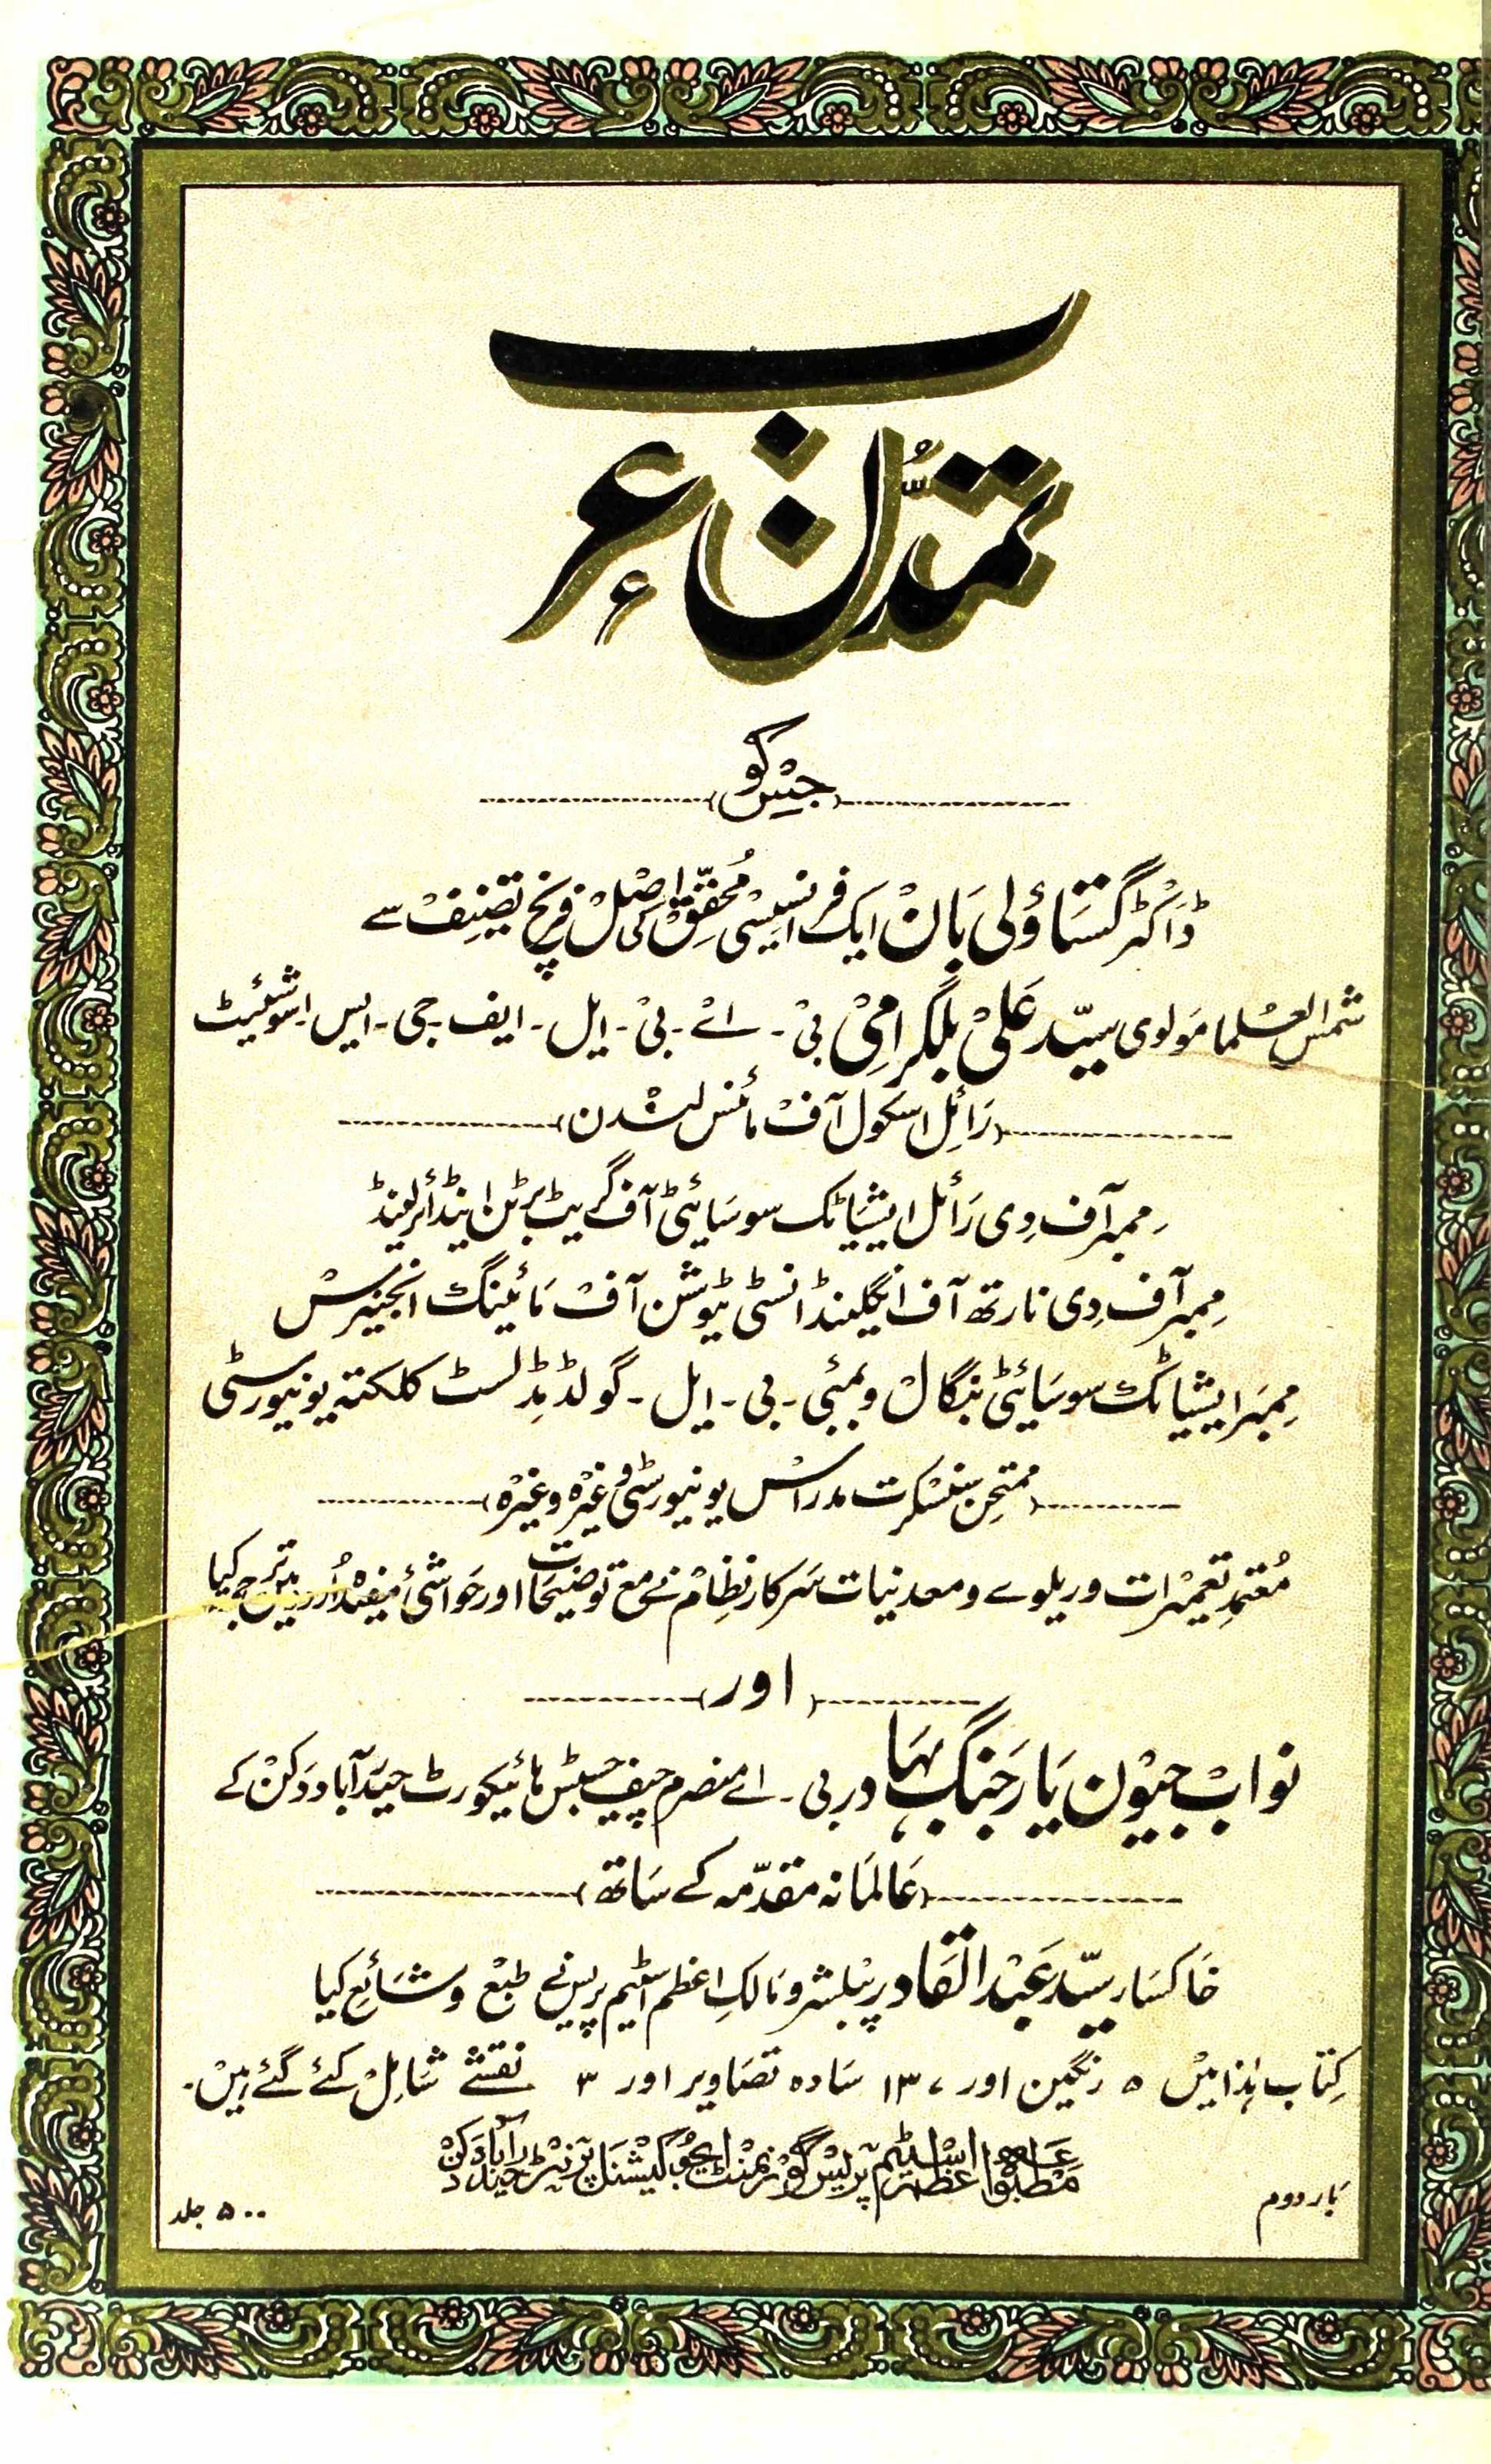 تمدّن عرب
جس کو
ڈاکٹر گستاؤلی بان ایک فرانسیسی محقق کی اصل فرنچ تصنیف سے
شمس العلما مولوی سیّد علی بلگرامی بی - اے - بی - ایل - ایف - جی - ایس - اسوشئیٹ
(رائل اسکول آف مائنس لندن)
ممبر آف دی رائل ایشیاٹک سوسائیٹی آف گریٹ برٹن اینڈ ائرلینڈ
ممبر آف دی نارتھ آف انگلینڈ انسٹی ٹیوشن آف مائیننگ انجنیرس
ممبر ایشیاٹک سوسائیٹی بنگال و بمبئی - بی - ایل - گولڈ مڈلسٹ کلکتہ یونیورسٹی
(ممتحن سنسکرت مدراس یونیورسٹی وغیرہ وغیرہ)
معتمد تعمیرات و ریلوے و معدنیات سرکار نظام نے مع توضیحات اور حواشیٔ مفید اُردو میں ترجمہ کیا
(اور)
نواب جیون یار جنگ بہادر بی - اے منصرم چیف جسٹس ہائیکورٹ حیدرآباد دکن کے
(عالمانہ مقدّمہ کے ساتھ)
خاکسار سیّد عبد القادر پبلشر و مالک اعظم اسٹیم پریس نے طبع و شائع کیا
کتاب ہذا میں ۵ رنگین اور ۱۳۷ سادہ تصاویر اور ۳ نقشے شامل کئے گئے ہیں -
مطبوعہ اعظم اسٹیم پریس گورنمنٹ ایجوکیشنل پرنٹر حیدرآباد دکن
بار دوم
۵۰۰ جلد